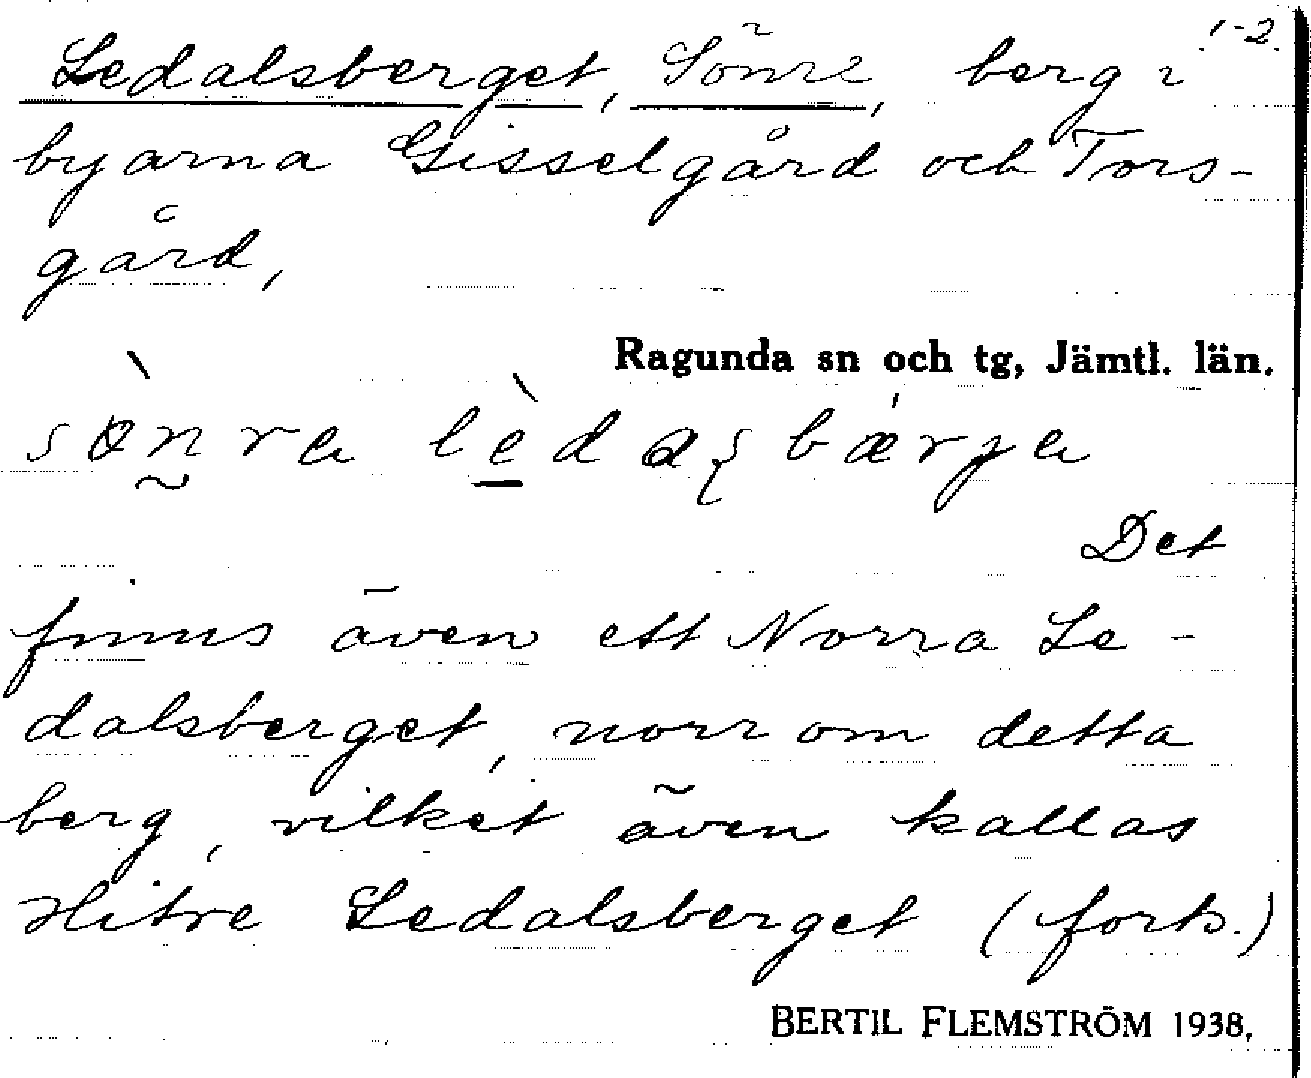 1-2
Ledalsberget, Sönre, berg i
byarna Gisselgård och Tors-
gård,
Ragunda sn och tg, Jämtl. län.
Det
finns även ett Norra Le-
dalsberget, norr om detta
berg, vilket även kallas
Hitre Ledalsberget (forts.)
BERTIL FLEMSTRÖM 1938,